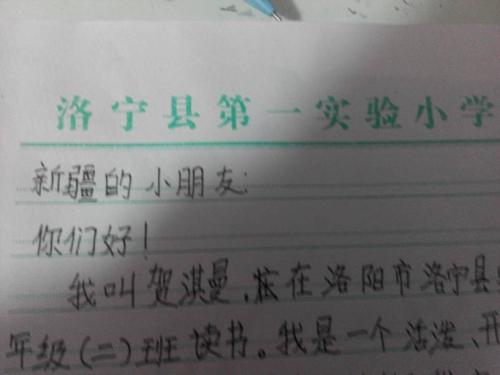 洛宁县第一实验小学
新疆的小朋友:
你们好!
我叫贺淇曼,在洛阳市洛宁县
年级(二)班读书。我是一个活泼、开